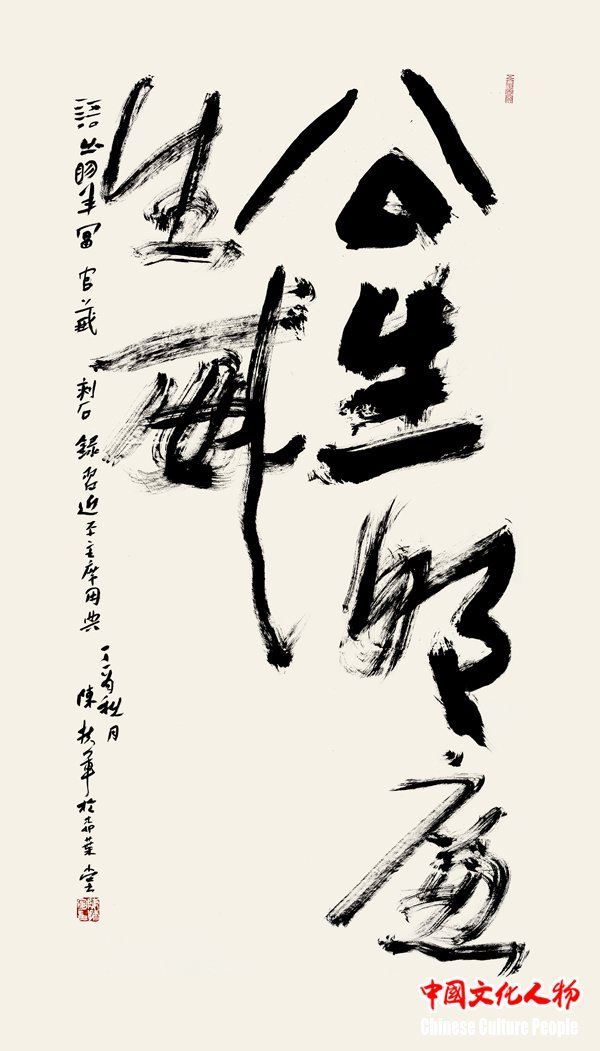 公生明廉
生威
語出明年富官箴刻石錄習近平主席用典
丁酉秋月
陳扶軍於葉堂
中國文化人物
Chinese Culture People